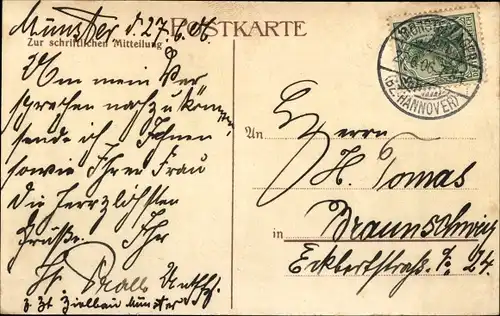 Munster d. 27.6.06
POSTKARTE
Zur schriftlichen Mitteilung
Um mein Ver
sprechen nachzukommen,
sende ich Ihnen
sowie Ihrer Frau
die herzlichsten
Grüße. Ihr
H.
z. Zt. Munster
MUNSTER
(BZ. HANNOVER)
An Herrn
H. Tomas
in Braunschweig
Eckbertstraß. No. 24.